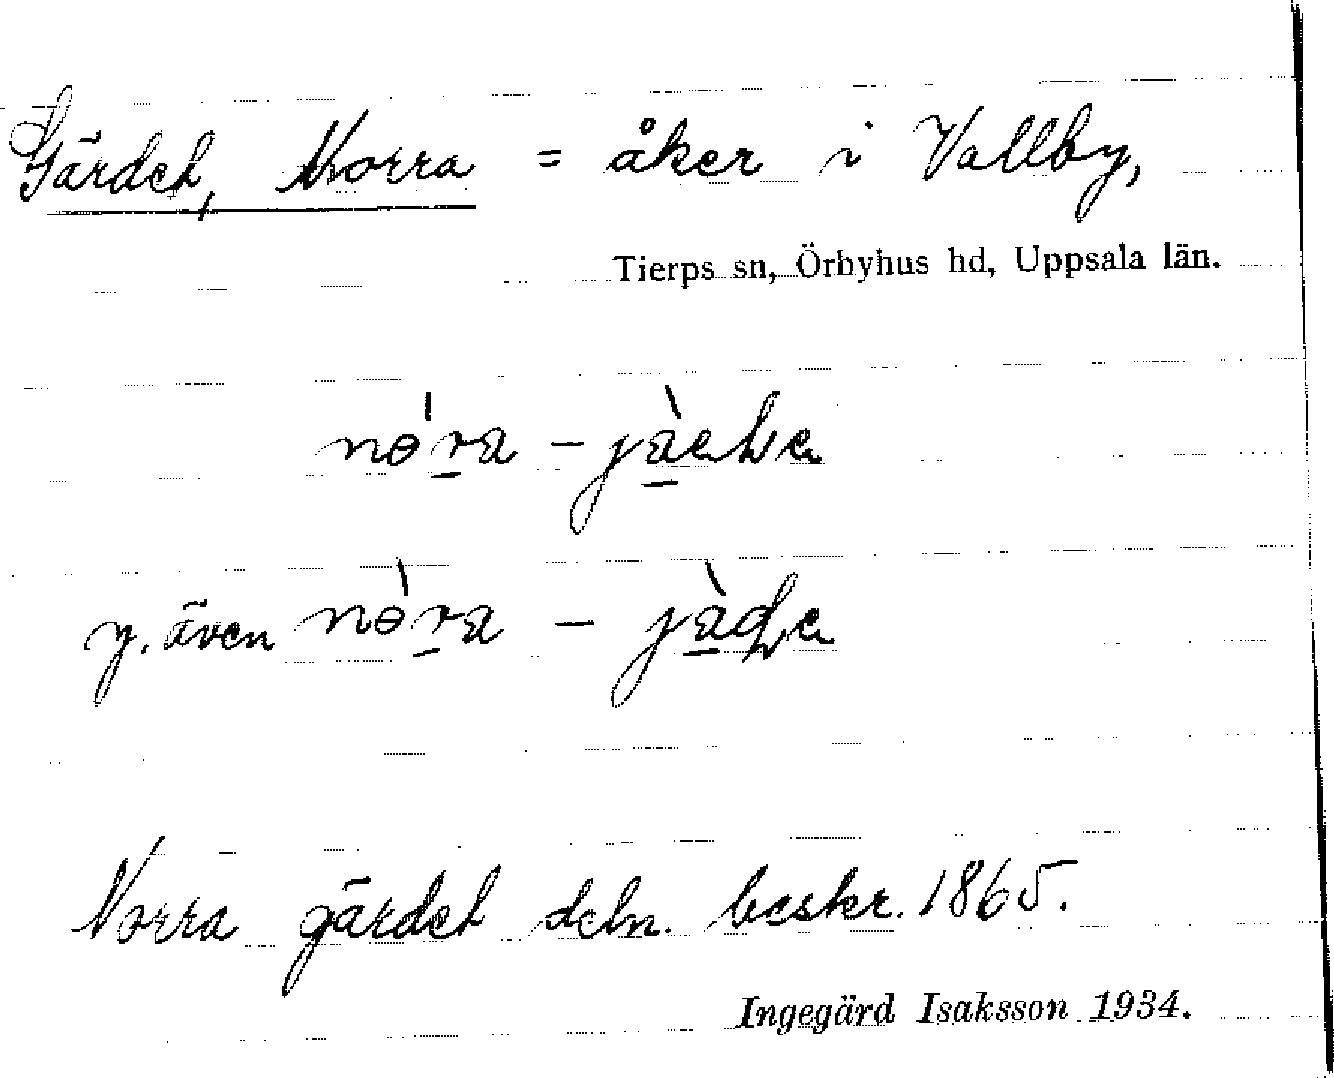 Gärdet, Norra = åker i Vallby,
Tierps sn, Örbyhus hd, Uppsala län.
y. även
Norra gärdet deln. beskr. 1865.
Ingegärd Isaksson 1934.